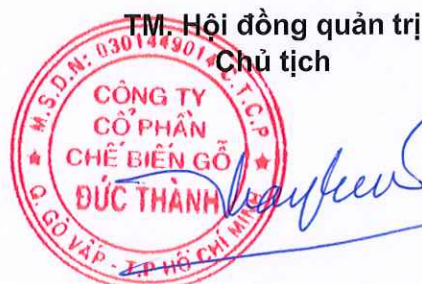 TM. Hội đồng quản trị
Chủ tịch
M.S.D.N: 0301449014 C.T.C.P
CÔNG TY
CỔ PHẦN
CHẾ BIẾN GỖ
ĐỨC THÀNH
Q. GÒ VẤP - T.P HỒ CHÍ MINH